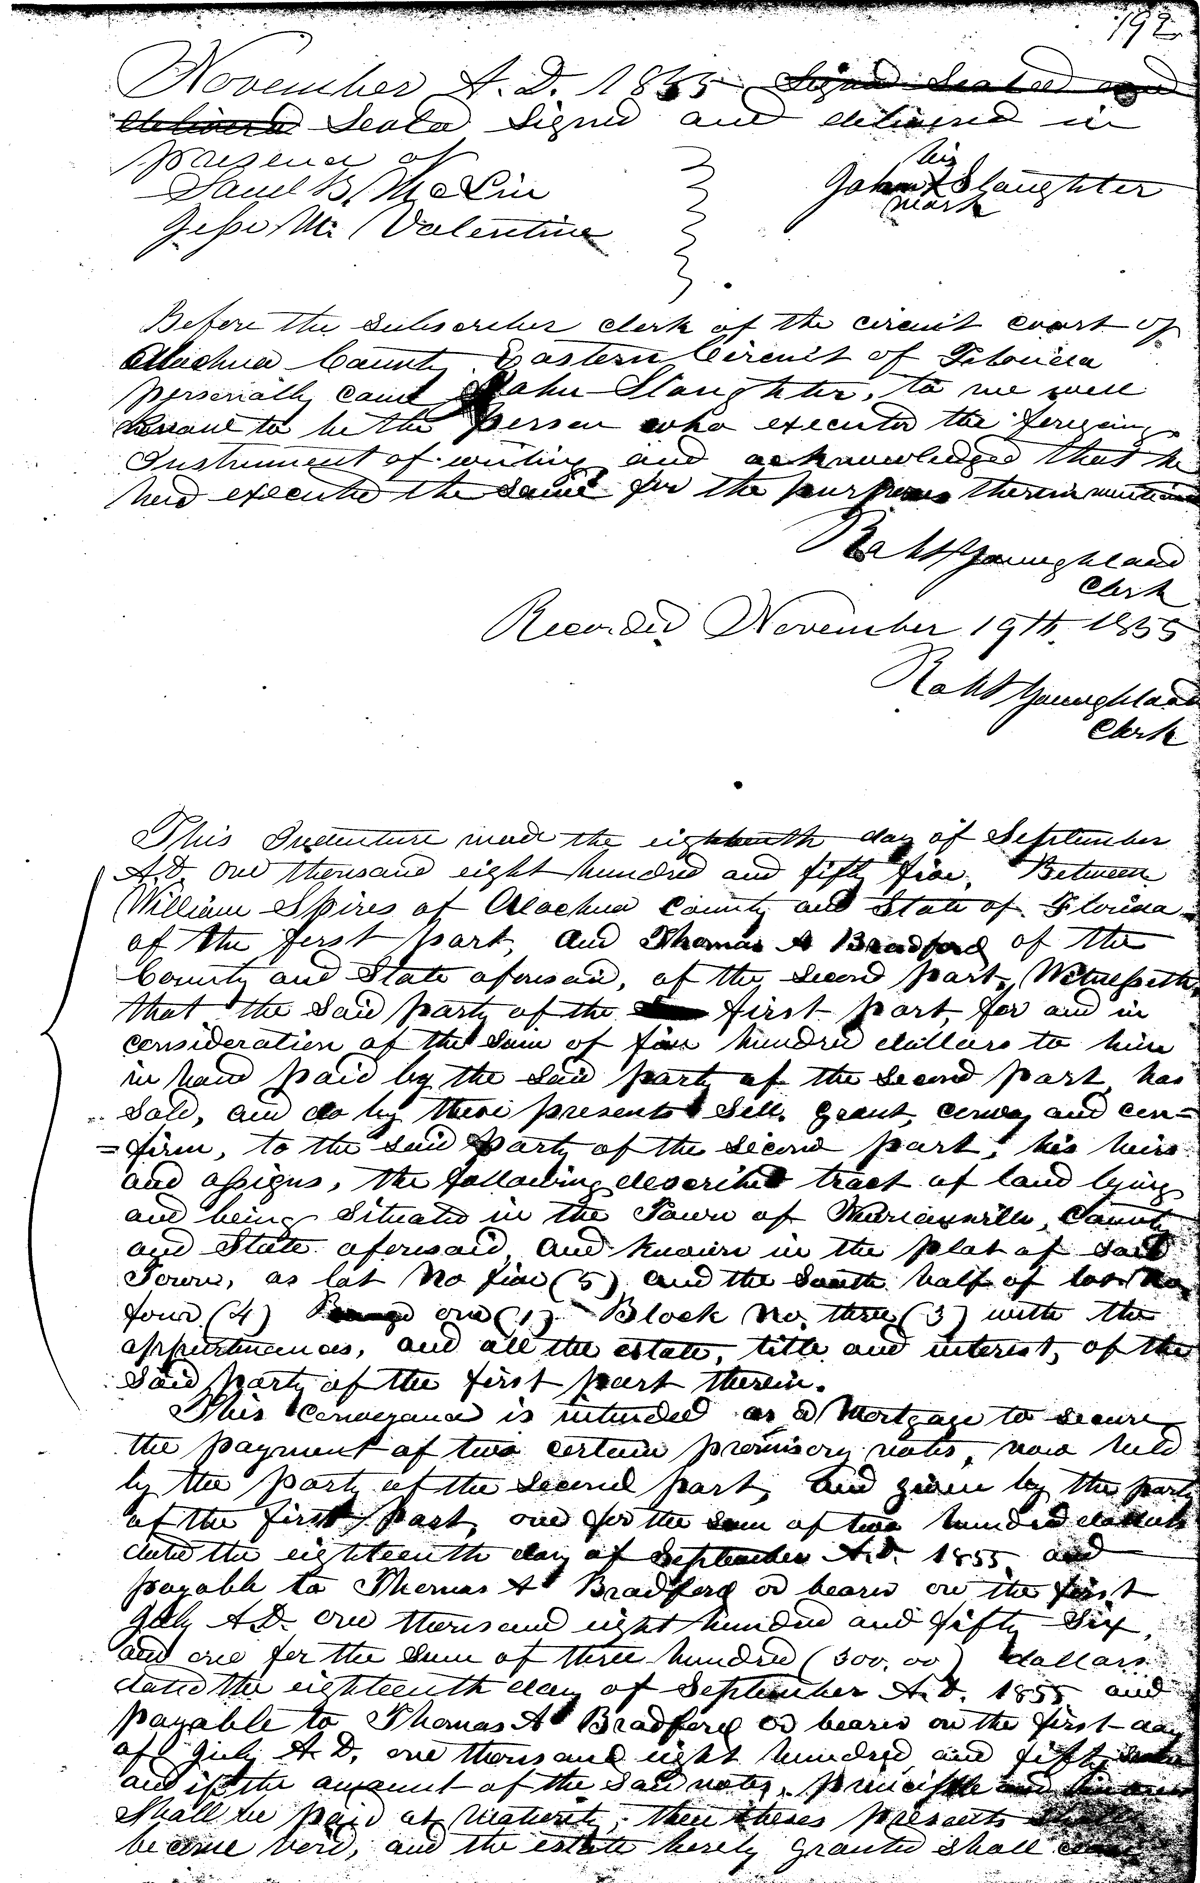 192
November A.D. 1855 Signed Sealed and
delivered Seald Signed and delivered in
presence of
Saml B. McLin
Jesse M. Valentine
his
John X Slaughter
mark
Before the subscriber clerk of the circuit court of
Alachua County Eastern Circuit of Florida
personally came John Slaughter, to me well
knowne to be the person who executed the foregoing
Instrument of writing and acknowledged that he
had execute the same for the purposes therein mentioned
Robt Youngblood
Clerk
Recorded November 19th. 1855
Robt Youngblood
Clerk
This Indenture made the eighteenth day of September
A.D. one thousand eight hundred and fifty five, Between
William Spires of Alachua County and State of Florida
of the first part, and Thomas A Bradford of the
County and State aforesaid, of the second part, Witnesseth,
that the said party of the first part, for and in
consideration of the sum of five hundred dollars to him
in hand paid by the said party of the second part, has
Sold, and do by these presents Sell, grant, convey and con=
=firm, to the said party of the second part, his heirs
and assigns, the following described tract of land lying
and being situated in the Town of County
and State aforesaid, and known in the plat of said
Town, as lot No five (5) and the South half of lot No
four (4) Range one (1) Block No. three (3) with the
appurtenances, and all the estate, title and interest, of the
said party of the first part therein.
This conveyance is intended as a Mortgage to secure
the payment of two certain promisory notes, now held
by the party of the second part, and given by the party
of the first part, one for the sum of two hundred dollars
dated the eighteenth day of September A.D. 1855 and
payable to Thomas A Bradford or bearer on the first
July A.D. one thousand eight hundred and fifty Six,
and one for the sum of three hundred (300.00) dollars
dated the eighteenth day of September A.D. 1855 and
payable to Thomas A Bradford or bearer on the first day
of July A.D. one thousand eight hundred and fifty
and if the amount of the said notes, principle and
shall be paid at maturity, then theses presents shall
become void, and the estate hereby granted shall